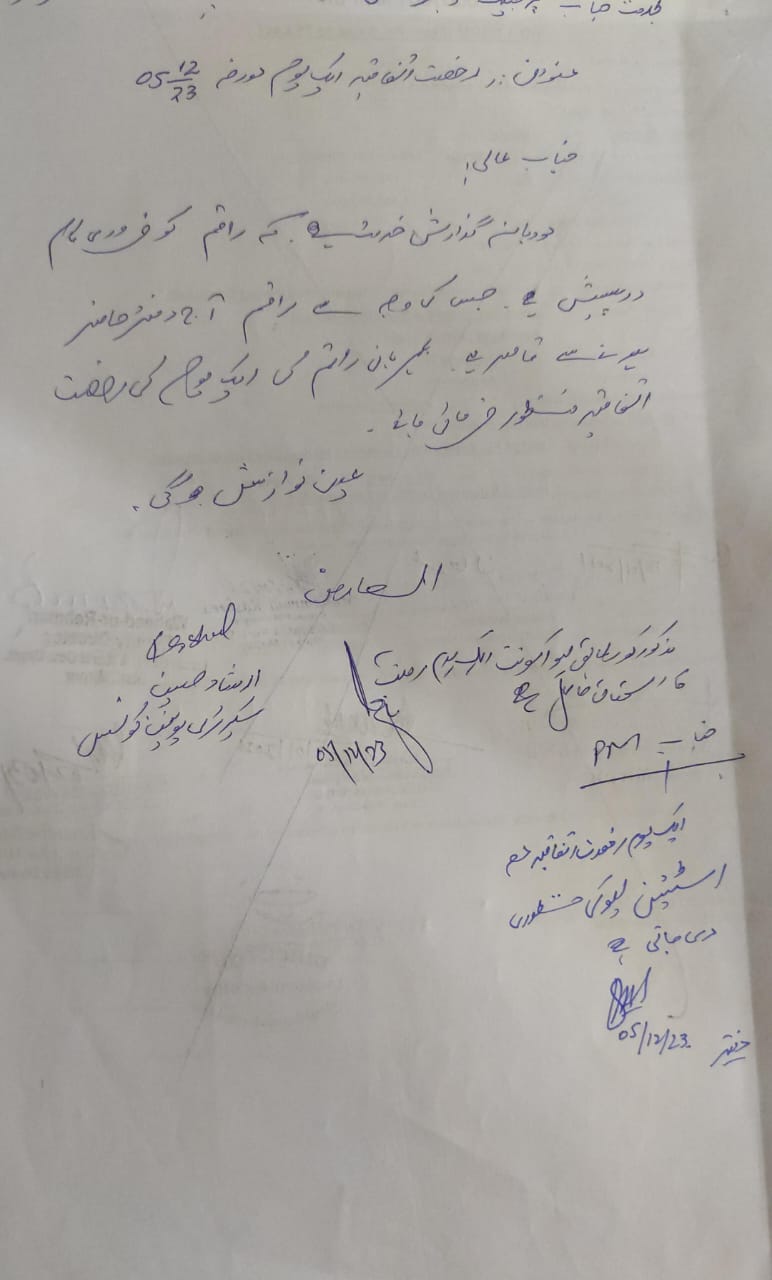 بخدمت جناب
عنوان :۔ رخصت اتفاقیہ ایک یوم مورخہ 05/12/23
جناب عالی!
مودبانہ گذارش خدمت ہے۔ کہ راقم کو ضروری کام
درپیش ہے۔ جس کی وجہ سے راقم آج دفتر حاضر
ہونے سے قاصر ہے۔ راقم کی ایک یوم کی رخصت
اتفاقیہ منظور فرمائی جائے۔
عین نوازش ہوگی۔
العارض
ارشاد حسین
سیکرٹری یونین کونسل
مذکور مطابق لیو اکونٹ ایک یوم رخصت
کا استحقاق ہے
05/12/23
جناب PM
ایک یوم رخصت اتفاقیہ مع
اسٹیشن لیو کی منظوری
دی جاتی ہے
05/12/23
دفتر